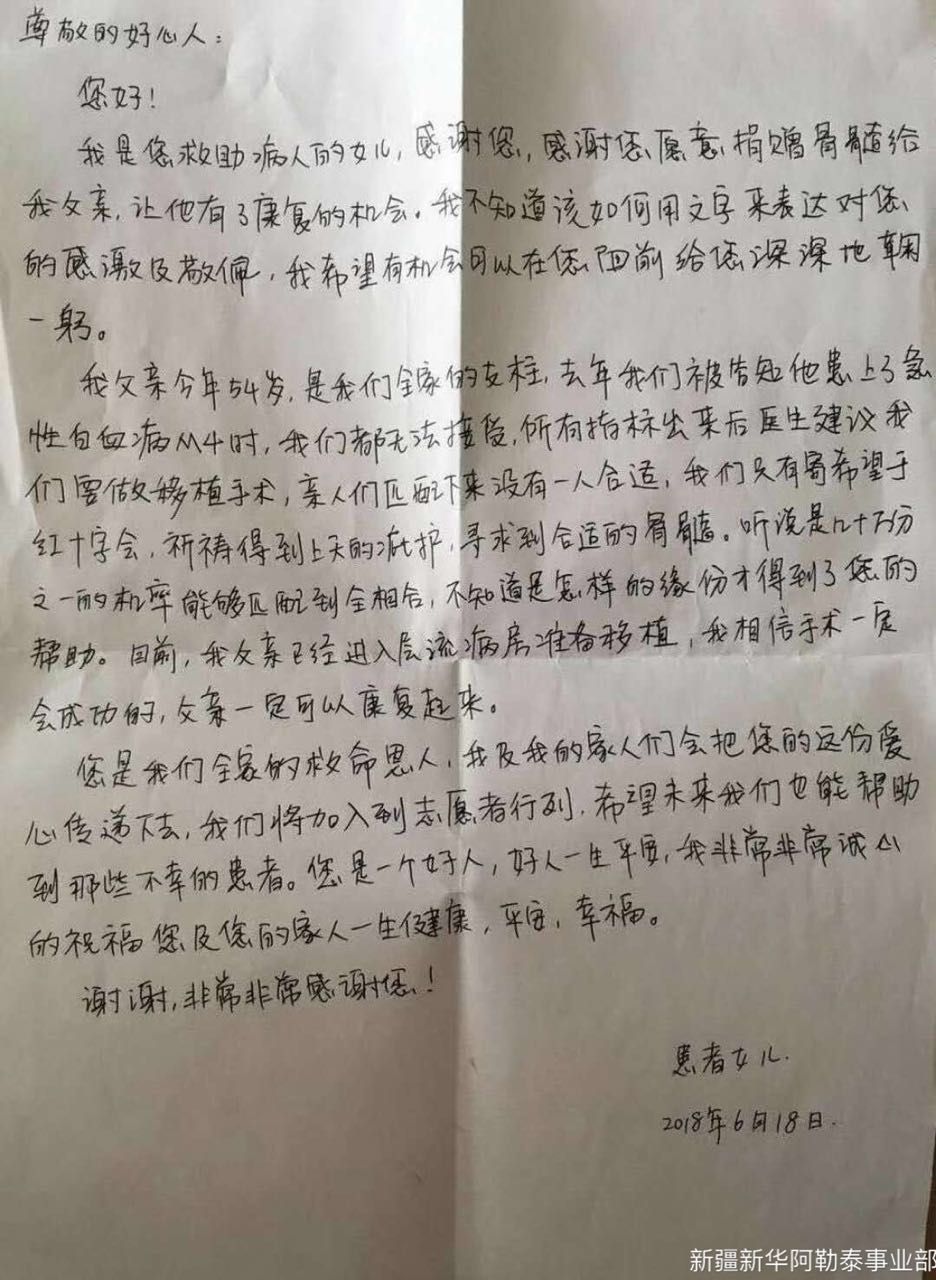 尊敬的好心人：
您好！
我是您救助病人的女儿，感谢您，感谢您愿意捐赠骨髓给
我父亲，让他有了康复的机会。我不知道该如何用文字来表达对您
的感激及敬佩，我希望有机会可以在您面前给您深深地鞠
一躬。
我父亲今年54岁，是我们全家的支柱，去年我们被告知他患上了急
性白血病M4时，我们都无法接受，所有指标出来后医生建议我
们要做移植手术，亲人们匹配下来没有一人合适，我们只有寄希望于
红十字会，祈祷得到上天的庇护，寻求到合适的骨髓。听说是几十万分
之一的机率能够匹配到全相合，不知道是怎样的缘份才得到了您的
帮助。目前，我父亲已经进入层流病房准备移植，我相信手术一定
会成功的，父亲一定可以康复起来。
您是我们全家的救命恩人，我及我的家人们会把您的这份爱
心传递下去，我们将加入到志愿者行列，希望未来我们也能帮助
到那些不幸的患者。您是一个好人，好人一生平安，我非常非常诚心
的祝福您及您的家人一生健康，平安，幸福。
谢谢，非常非常感谢您！
患者女儿.
2018年6月18日.
新疆新华阿勒泰事业部